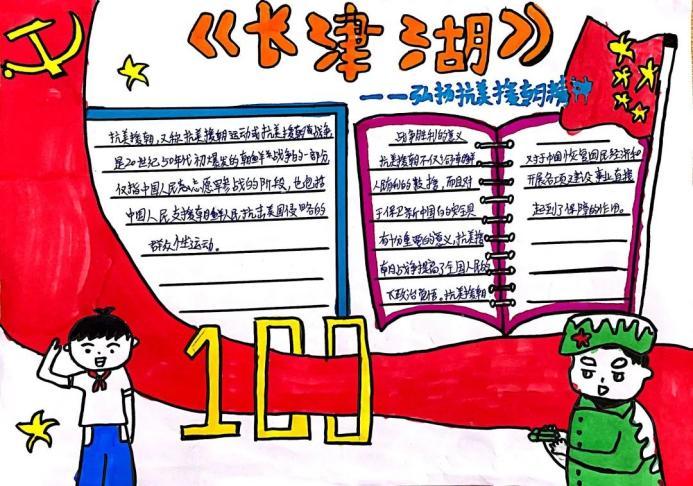 《长津湖》
——弘扬抗美援朝精神
抗美援朝,又称抗美援朝运动或抗美援朝战争
是20世纪50年代初爆发的朝鲜战争的一部分
仅指中国人民志愿军参战的阶段,也包括
中国人民支援朝鲜人民抗击美国侵略的
群众性运动。
战争胜利的意义
抗美援朝不仅支持朝鲜
人民的
于保卫新中国的安全具
有十分重要的意义,抗美援
朝战争提高了全国人民的
政治觉悟,抗美援朝
对于中国恢复国民经济和
开展各项建设事业直接
起到了保障的作用。
100